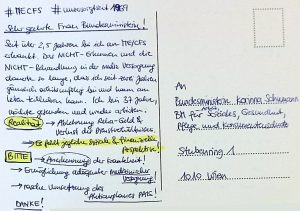 #MECFS #unversorgtseit 1989
Sehr geehrte Frau Bundesministerin!
Seit über 2,5 Jahren bin ich an ME/CFS
erkrankt. Das NICHT-Erkennen und die
NICHT-Behandlung in der
so lange, dass ich seit zwei Jahren
bin und kaum am
Leben teilhaben kann. Ich bin 37 Jahre,
möchte gesunden und wieder arbeiten.
Realität → Ablehnung Reha-Geld &
Verlust des
Es fehlt jegliche soziale & finanzielle
BITTE → Anerkennung der Krankheit!
→ Ermöglichung adäquater medizinischer
Versorgung!
→ rasche Umsetzung des
Aktionsplanes PAIS!
DANKE!
An
Bundesministerin Korinna Schumann
BM für Arbeit, Soziales, Gesundheit,
Pflege und Konsumentenschutz
Stubenring 1
1010 Wien